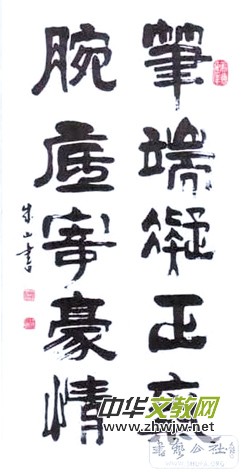 筆端凝正氣
腕底寄豪情
山書
中华文教网
www.zhwjw.net